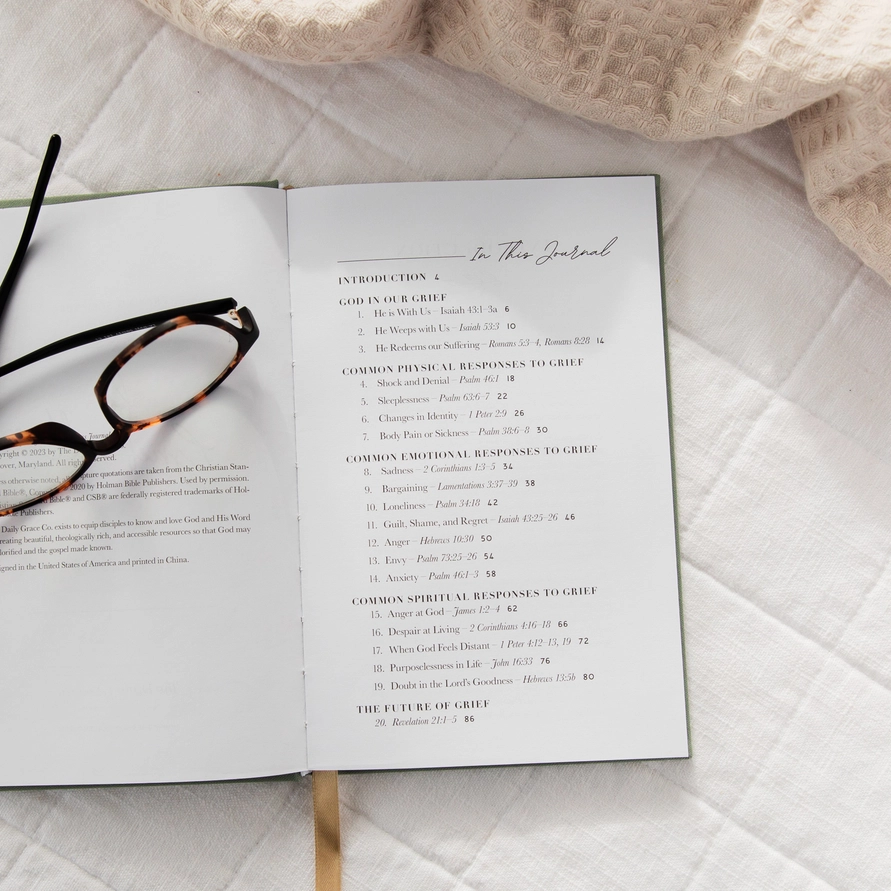 Journal
yright © 2023 by The
over, Maryland. All rights reserved.
ess otherwise noted, scripture quotations are taken from the Christian Stan-
Bible®, Copyright 2020 by Holman Bible Publishers. Used by permission.
Bible® and CSB® are federally registered trademarks of Hol-
Publishers.
Daily Grace Co. exists to equip disciples to know and love God and His Word
reating beautiful, theologically rich, and accessible resources so that God may
lorified and the gospel made known.
igned in the United States of America and printed in China.
In This Journal
INTRODUCTION 4
GOD IN OUR GRIEF
1. He is With Us – Isaiah 43:1–3a 6
2. He Weeps with Us – Isaiah 53:3 10
3. He Redeems our Suffering – Romans 5:3–4, Romans 8:28 14
COMMON PHYSICAL RESPONSES TO GRIEF
4. Shock and Denial – Psalm 46:1 18
5. Sleeplessness – Psalm 63:6–7 22
6. Changes in Identity – 1 Peter 2:9 26
7. Body Pain or Sickness – Psalm 38:6–8 30
COMMON EMOTIONAL RESPONSES TO GRIEF
8. Sadness – 2 Corinthians 1:3–5 34
9. Bargaining – Lamentations 3:37–39 38
10. Loneliness – Psalm 34:18 42
11. Guilt, Shame, and Regret – Isaiah 43:25–26 46
12. Anger – Hebrews 10:30 50
13. Envy – Psalm 73:25–26 54
14. Anxiety – Psalm 46:1–3 58
COMMON SPIRITUAL RESPONSES TO GRIEF
15. Anger at God – James 1:2–4 62
16. Despair at Living – 2 Corinthians 4:16–18 66
17. When God Feels Distant – 1 Peter 4:12–13, 19 72
18. Purposelessness in Life – John 16:33 76
19. Doubt in the Lord's Goodness – Hebrews 13:5b 80
THE FUTURE OF GRIEF
20. Revelation 21:1–5 86